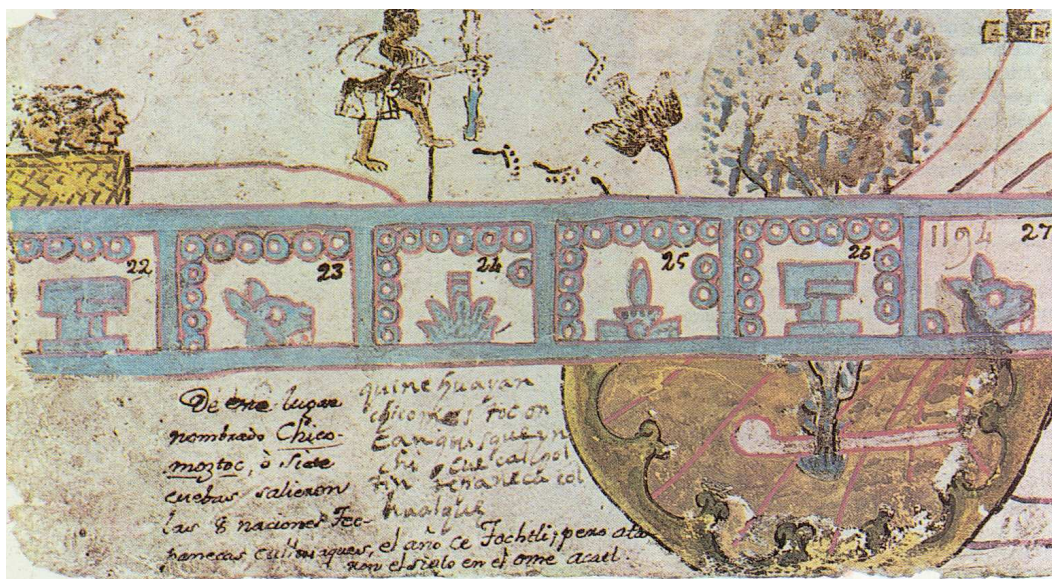 22 23 24 25 26 1194 27
De este lugar
nombrado Chico-
moztoc, ò siete
cuebas salieron
las 8 naciones Tec-
panecas culhuaques, el año ce Tochtli; pero ata
ron el siglo en el ome acatl.
quinehuayan
chicomos toc on
canquisque yn
chi cue calpol
tin col
hualque